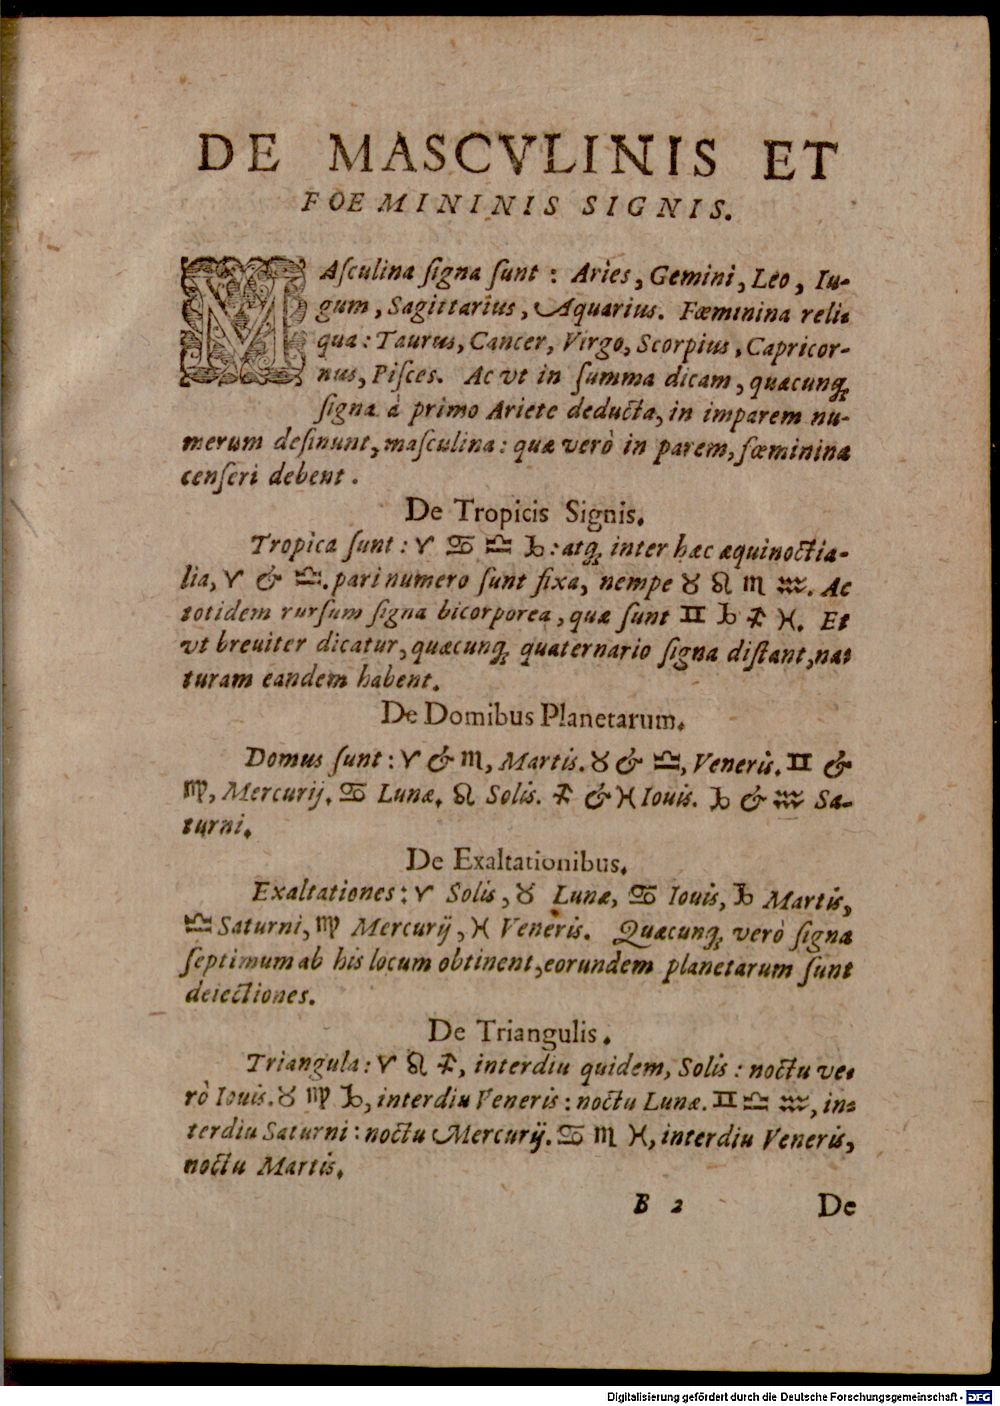 DE MASCVLINIS ET
FOEMININIS SIGNIS.
MAſculina ſigna ſunt : Aries, Gemini, Leo, Iu-
gum, Sagittarius, Aquarius. Fœminina reli-
qua: Taurus, Cancer, Virgo, Scorpius, Capricor-
nus, Piſces. Ac vt in ſumma dicam, quæcunq;
ſigna à primo Ariete deducta, in imparem nu-
merum deſinunt, maſculina: quæ verò in parem, fœminina
cenſeri debent.
De Tropicis Signis.
Tropica ſunt: ♈ ♋ ♎ ♑: atq; inter hæc æquinoctia-
lia, ♈ & ♎. pari numero ſunt fixa, nempe ♉ ♌ ♏ ♒. Ac
totidem rurſum ſigna bicorporea, quæ ſunt ♊ ♑ ♐ ♓. Et
vt breuiter dicatur, quæcunq; quaternario ſigna diſtant, na-
turam eandem habent.
De Domibus Planetarum.
Domus ſunt: ♈ & ♏, Martis. ♉ & ♎, Veneris. ♊ &
♍, Mercurij. ♋ Lunæ. ♌ Solis. ♐ & ♓ Iouis. ♑ & ♒ Sa-
turni.
De Exaltationibus.
Exaltationes: ♈ Solis, ♉ Lunæ, ♋ Iouis, ♑ Martis,
♎ Saturni, ♍ Mercurij, ♓ Veneris. Quæcunq; verò ſigna
ſeptimum ab his locum obtinent, eorundem planetarum ſunt
deiectiones.
De Triangulis.
Triangula: ♈ ♌ ♐, interdiu quidem, Solis: noctu ve-
rò Iouis. ♉ ♍ ♑, interdiu Veneris: noctu Lunæ. ♊ ♎ ♒, in-
terdiu Saturni: noctu Mercurij. ♋ ♏ ♓, interdiu Veneris,
noctu Martis.
B 2 De
Digitalisierung gefördert durch die Deutsche Forschungsgemeinschaft - DFG